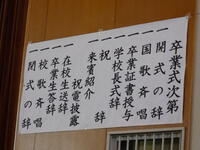 卒業式次第
一 開式の辞
一 国歌斉唱
一 卒業証書授与
一 学校長式辞
一 祝辞
一 来賓紹介
祝電披露
一 在校生送辞
一 卒業生答辞
一 校歌斉唱
一 閉式の辞